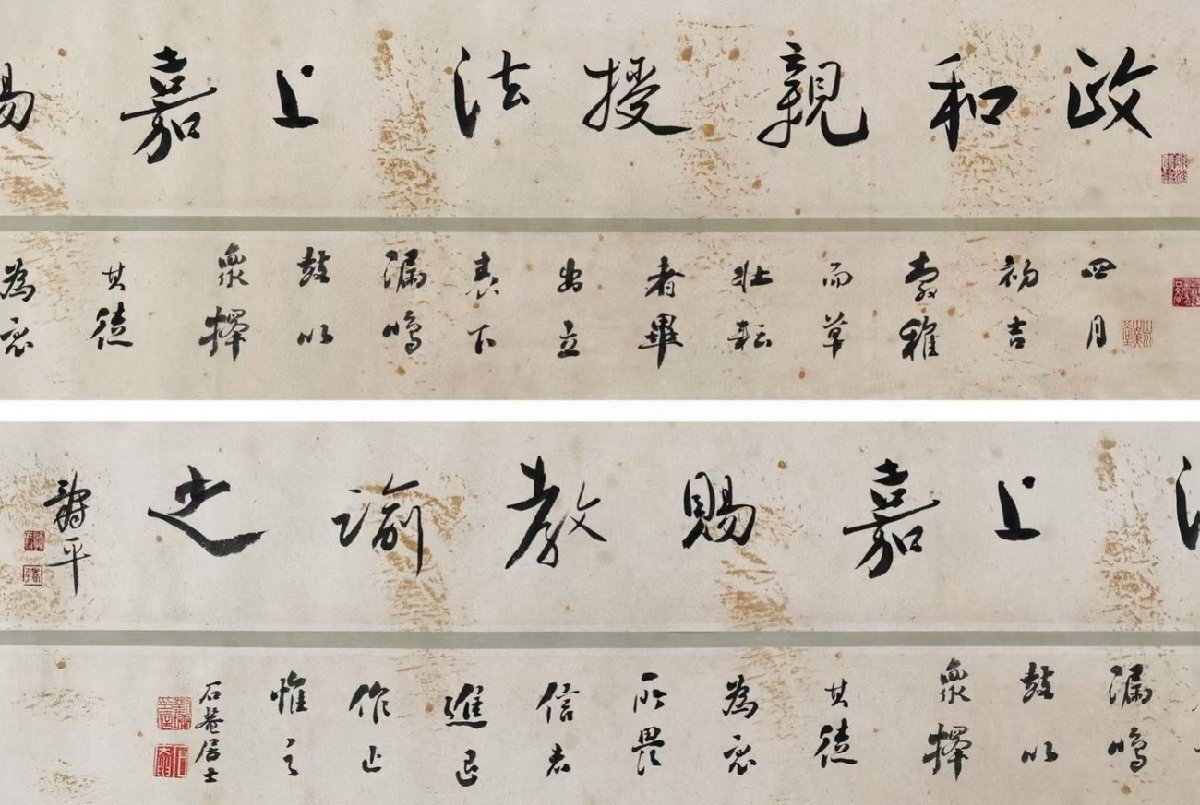 政和親授法上嘉
四月
初吉
穀稚
而草
壯耘
者畢
出立
表下
漏鳴
鼓以
眾擇
其徒
為眾
上嘉賜教瑜之
壽平
漏鳴
鼓以
眾擇
其徒
為眾
所畏
信者
進退
作止
惟之
石菴居士